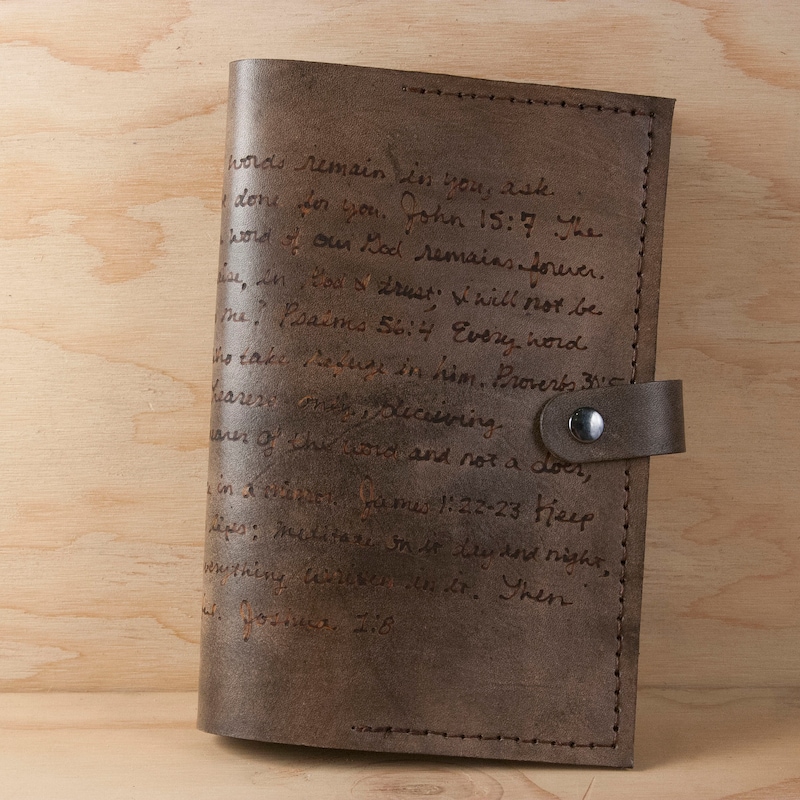 words remain in you, ask
done for you. John 15:7 The
word of our God remains forever.
in God I trust; I will not be
me? Psalms 56:4 Every word
who take refuge in him. Proverbs 30:5
hearers only, decieving
hearer of the word and not a doer,
in a mirror. James 1:22-23 Keep
meditate on it day and night,
everything written in it. Then
Joshua. 1:8